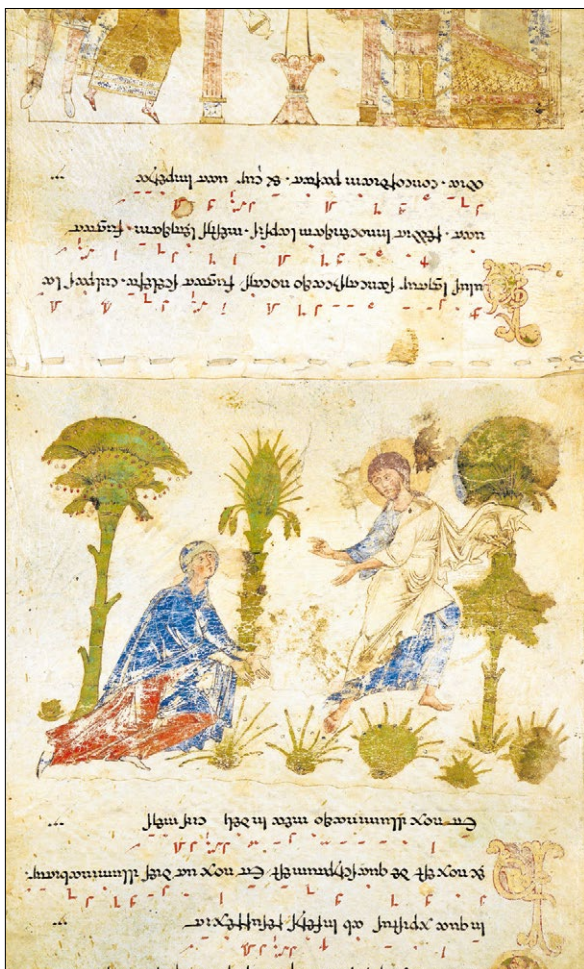 in qua xpistus ab inferis resurrexit
Hec nox est de qua scriptum est. Et nox ut dies illuminabitur.
Et nox illuminatio mea in deli ciis meis
Huius igitur sanctificatio noctis fugat scelera. culpas la
uat. reddit innocentiam lapsis. mestis letitiam. fugat
odia. concordiam parat. & curuat imperia